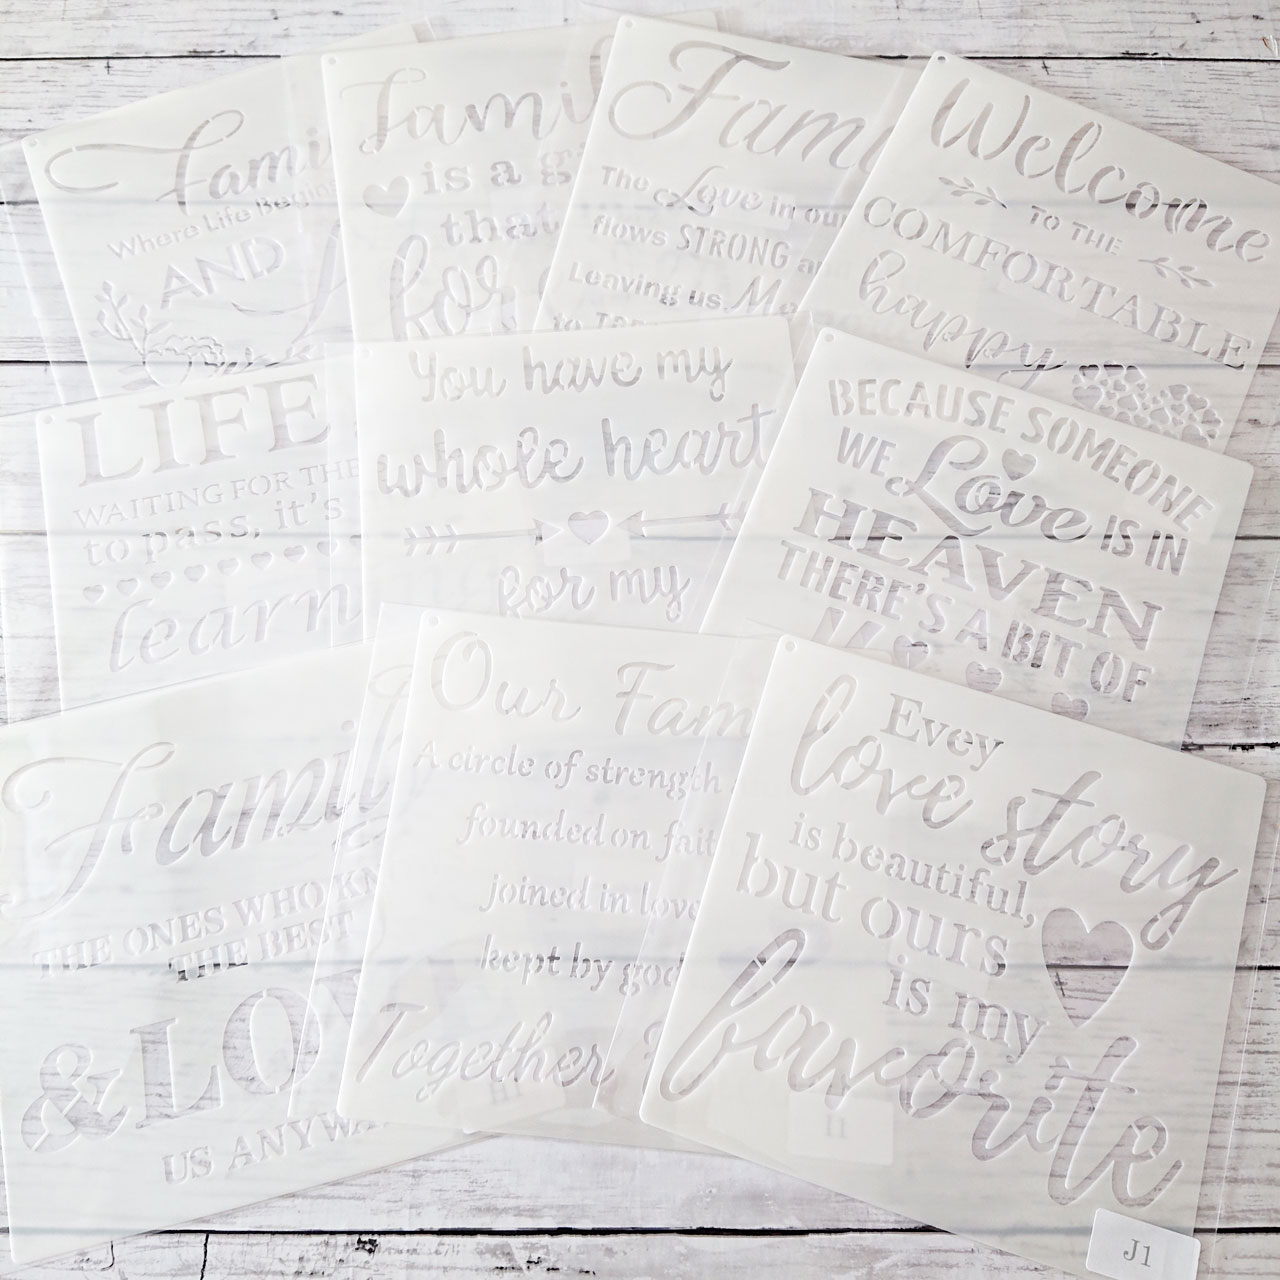 Famil
Where Life Begins
AND
Famil
is a gi
that
for
Fam
The Love in our
flows STRONG a
Leaving us Me
to
Welcome
TO THE
COMFORTABLE
happy
LIFE
WAITING FOR THE
to pass, it's
learn
You have my
whole heart
for my
BECAUSE SOMEONE
WE Love IS IN
HEAVEN
THERE'S A BIT OF
Family
THE ONES WHO KN
THE BEST
& LOV
US ANYWA
Our Fam
A circle of strength
founded on fait
joined in love
kept by god
Together
H1
Evey
love story
is beautiful,
but ours
is my
favorite
I1
J1